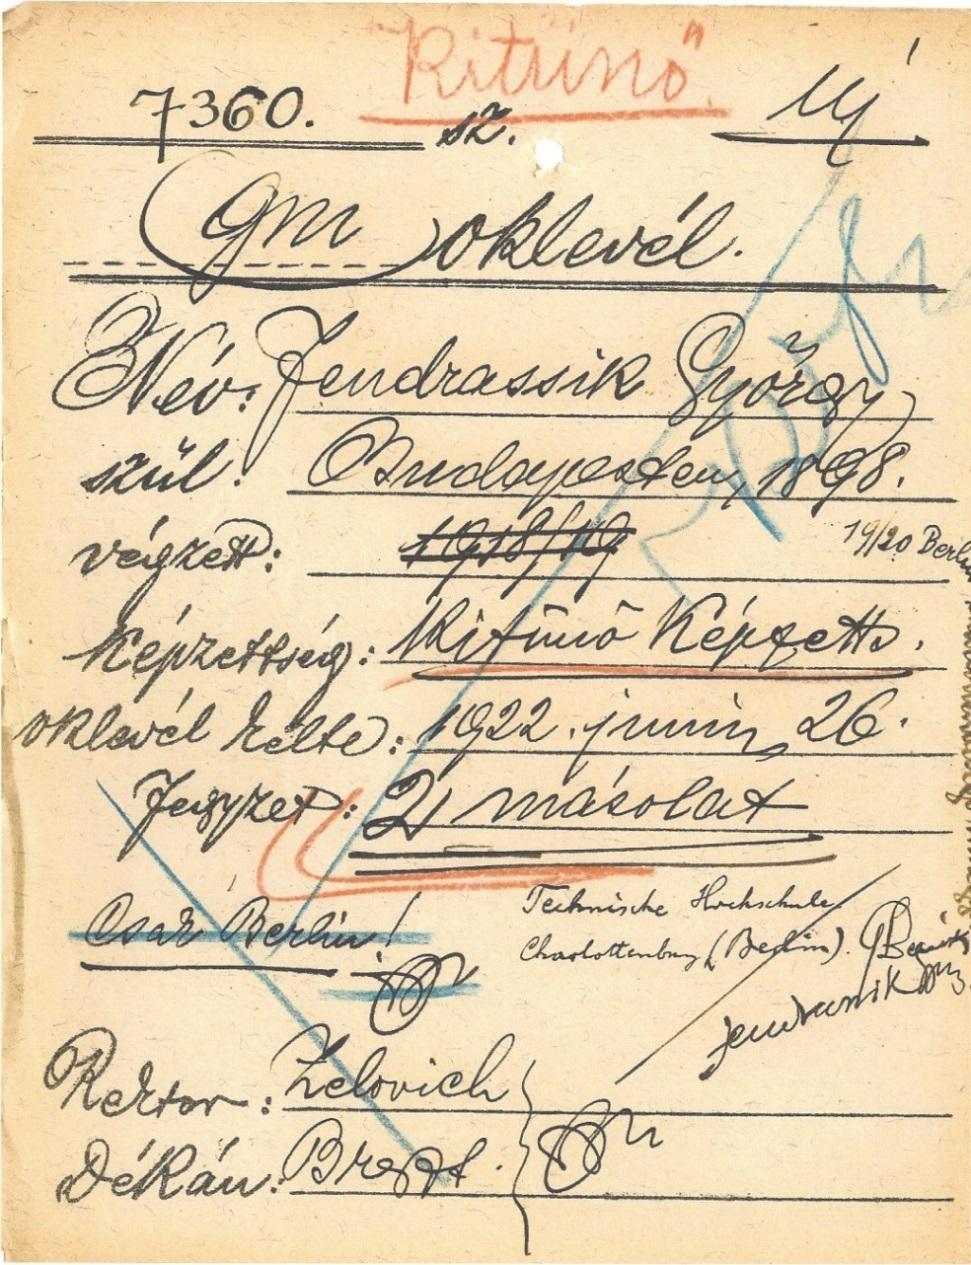 "Kitünő"
7360. sz. Uj
Gm oklevél.
Név: Jendrassik György
szül: Budapesten, 1898.
végzett: 1918/19 19/20 Berlin
Képzettség: Kitünő Képzett.
oklevél kelte: 1922. junius 26.
Jegyzet: 2 másolat
Csak Berlin!
Technische Hochschule
Charlottenburg (Berlin).
Jendrassik
Rektor: Zelovich
Dékán: